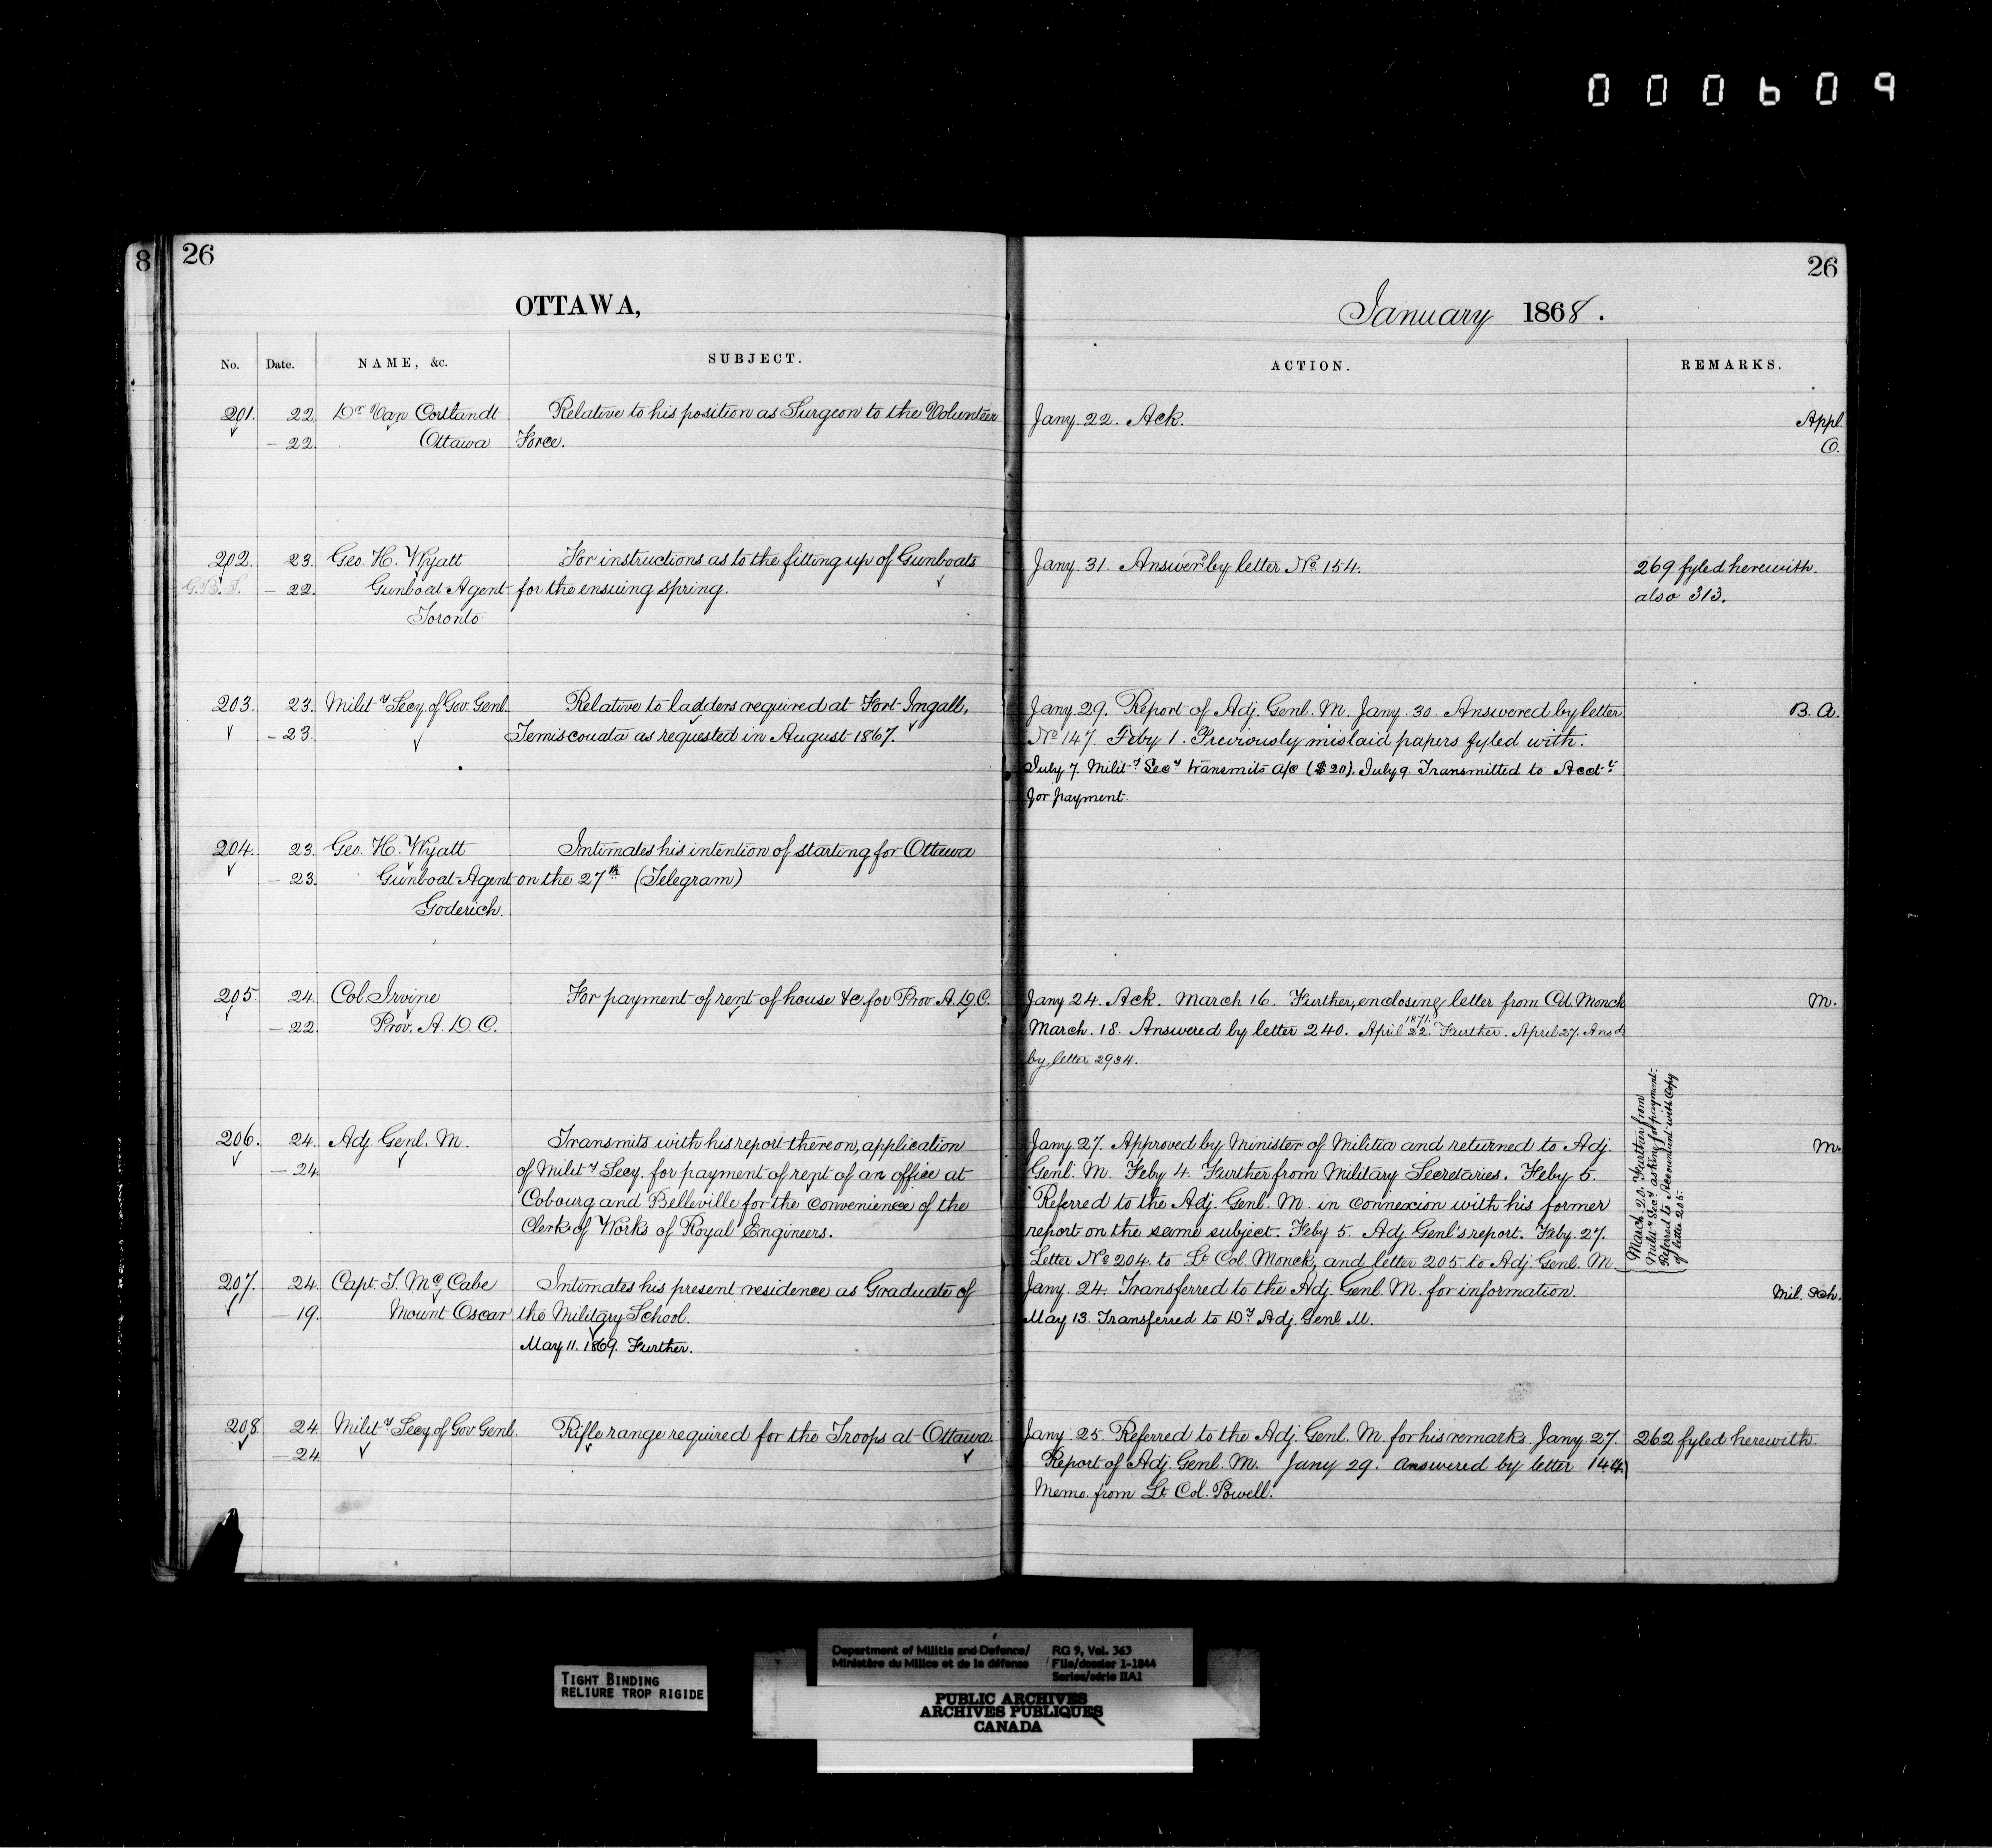 000609
8
26
26
OTTAWA,
January 1868.
No.
Date.
NAME, &c.
SUBJECT.
ACTION.
REMARKS.
201. 22. Dr Van Cortlandt Relative to his position as Surgeon to the Volunteer Jany. 22. Ack. Appl.
- 22. Ottawa Force. O.
202. 23. Geo. H. Wyatt For instructions as to the fitting up of Gunboats Jany. 31. Answerd by letter No. 154. 269 fyled herewith.
- 22. Gunboat Agent for the ensuing spring. also 313.
Toronto
203. 23. Mility Secy. of Gov. Genl. Relative to ladders required at Fort Ingall, Jany. 29. Report of Adj. Genl. M. Jany. 30. Answered by letter B. A.
- 23. Temiscouata as requested in August 1867. No 147. Feby 1. Previously mislaid papers fyled with.
July 7. Mility Secy transmits a/c ($20). July 9. Transmitted to Acctt
for payment.
204. 23. Geo. H. Wyatt Intimates his intention of starting for Ottawa
- 23. Gunboat Agent on the 27th (Telegram)
Goderich.
205. 24. Col. Irvine For payment of rent of house &c. for Prov. A.D.C. Jany 24. Ack. March 16. Further, enclosing letter from Col. Monck M.
- 22. Prov. A. D. C. March. 18. Answered by letter 240. April 22. 1871. Further. April 27. Ansd
by letter 2934.
206. 24. Adj. Genl. M. Transmits with his report thereon, application Jany. 27. Approved by Minister of Militia and returned to Adj. M.
- 24. of Mility Secy. for payment of rent of an office at Genl. M. Feby 4. Further from Military Secretaries. Feby 5.
Cobourg and Belleville for the convenience of the Referred to the Adj. Genl. M. in connexion with his former
Clerk of Works of Royal Engineers. report on the same subject. Feby 5. Adj. Genl's report. Feby. 27.
Letter No 204 to Lt Col. Monck, and letter 205 to Adj. Genl. M.
March. 20. Further from
Mility Secy asking for payment.
Referred to Accountant with Copy
of letter 205.
207. 24. Capt. T. McCabe Intimates his present residence as Graduate of Jany. 24. Transferred to the Adj. Genl. M. for information. Mil. Sch.
- 19. Mount Oscar the Military School. May 13. Transferred to Dy Adj. Genl. M.
May 11. 1869. Further.
208. 24. Mility Secy of Gov. Genl. Rifle range required for the Troops at Ottawa. Jany. 25. Referred to the Adj. Genl. M. for his remarks. Jany 27. 262 fyled herewith.
- 24. Report of Adj. Genl. M. Jany 29. answered by letter 144
Memo. from Lt Col. Powell.
TIGHT BINDING
RELIURE TROP RIGIDE
Department of Militia and Defence/ RG 9, Vol. 363
Ministère du Milice et de la défense File/dossier 1-1844
Series/série IIA1
PUBLIC ARCHIVES
ARCHIVES PUBLIQUES
CANADA